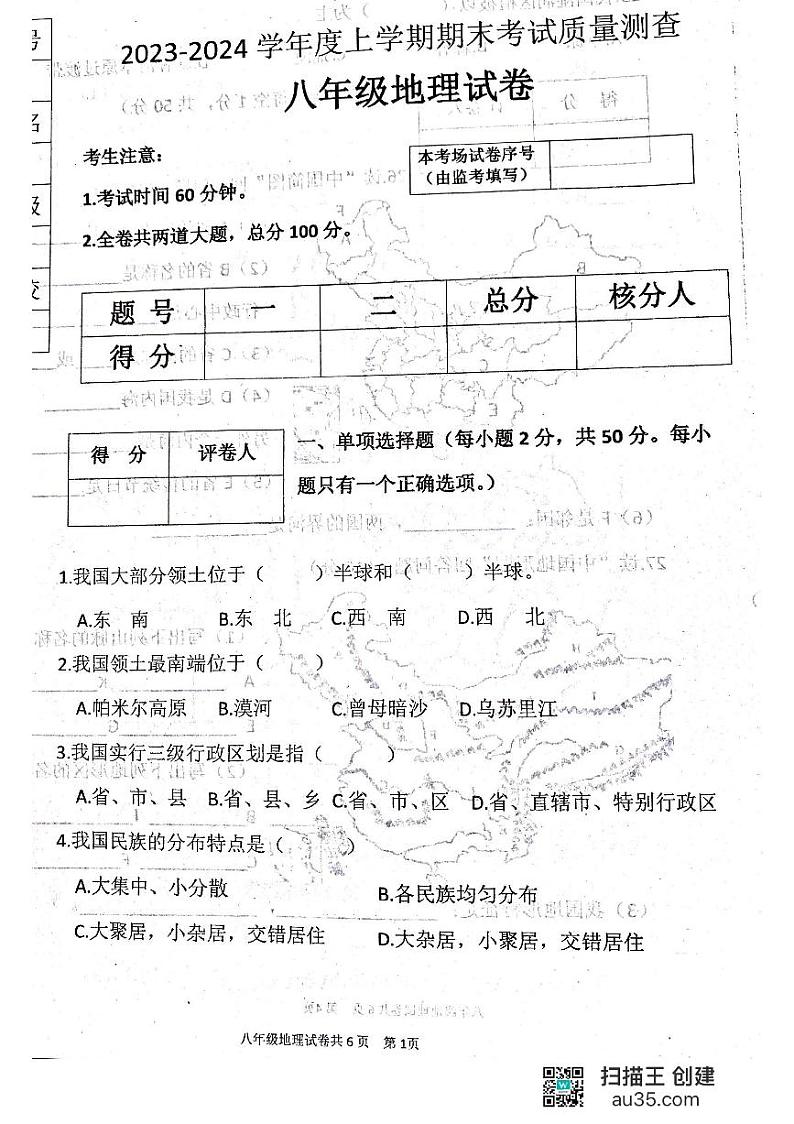 2023-2024 学年度上学期期末考试质量测查
八年级地理试卷
考生注意：
本考场试卷序号
（由监考填写）
1.考试时间 60 分钟。
2.全卷共两道大题，总分 100 分。
题 号 一 二 总分 核分人
得 分
得 分 评卷人
一、单项选择题（每小题 2 分，共 50 分。每小
题只有一个正确选项。）
1.我国大部分领土位于（ ）半球和（ ）半球。
A.东 南 B.东 北 C.西 南 D.西 北
2.我国领土最南端位于（ ）
A.帕米尔高原 B.漠河 C.曾母暗沙 D.乌苏里江
3.我国实行三级行政区划是指（ ）
A.省、市、县 B.省、县、乡 C.省、市、区 D.省、直辖市、特别行政区
4.我国民族的分布特点是（ ）
A.大集中、小分散 B.各民族均匀分布
C.大聚居，小杂居，交错居住 D.大杂居，小聚居，交错居住
八年级地理试卷共 6 页 第 1页
扫描王 创建
au35.com